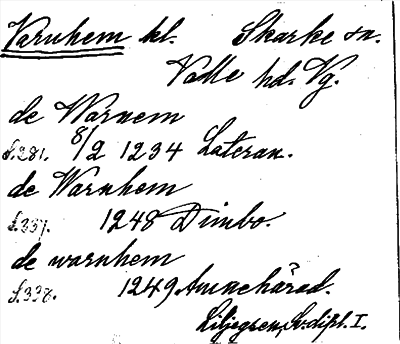 Varnhem kl. Skarke sn.
Valle hd. Vg.
de Warnem
s.281. 8/2 1234 Lateran.
de Warnhem
s.337. 1248 Dimbo.
de warnhem
s.338. 1249 Amnehärad.
Liljegren, Sv. dipl. I.